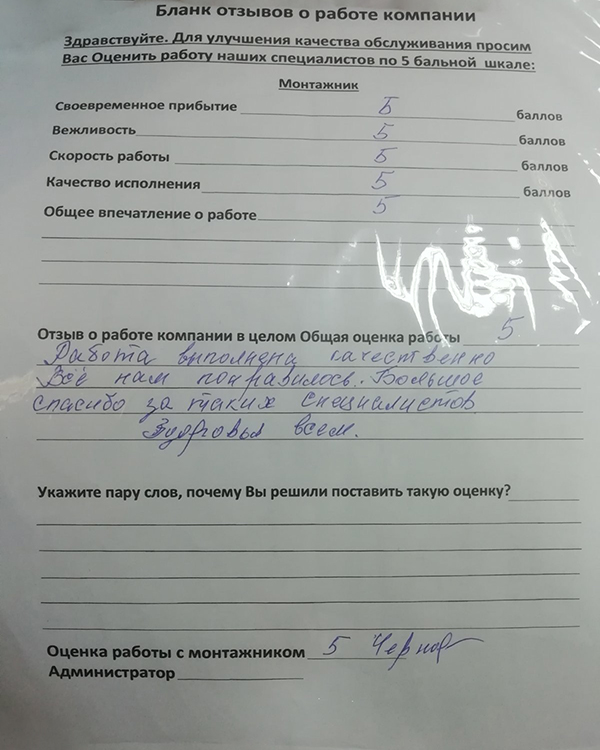 Бланк отзывов о работе компании
Здравствуйте. Для улучшения качества обслуживания просим
Вас Оценить работу наших специалистов по 5 бальной шкале:
Монтажник
Своевременное прибытие 5 баллов
Вежливость 5 баллов
Скорость работы 5 баллов
Качество исполнения 5 баллов
Общее впечатление о работе 5
Отзыв о работе компании в целом Общая оценка работы 5
Работа выполнена качественно
Всё нам понравилось. Большое
спасибо за таких специалистов
Здоровья всем.
Укажите пару слов, почему Вы решили поставить такую оценку?
Оценка работы с монтажником 5
Администратор